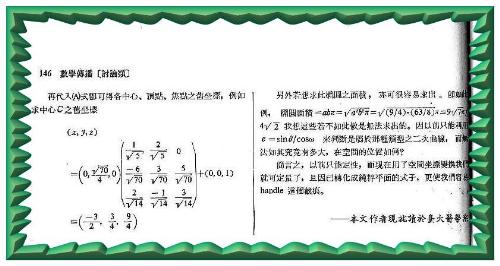 146 數學傳播〔討論類〕
再代入(A)式即可得各中心、頂點、焦點之舊坐標,例如
求中心 C 之舊坐標
(x, y, z)
= (0, 3√70/4, 0) ( 1/√5 2/√5 0
-6/√70 3/√70 5/√70
2/√14 -1/√14 3/√14 ) + (0, 0, 1)
= (-3/2, 3/4, 9/4)
另外若想求此橢圓之面積,亦可很容易求出。
例,橢圓面積 = abπ = √a²b²π = √(9/4)·(63/8) π = 9√7π/
4√2 我想這些若不如此做是無法求出的。因以前只能利用
e = sinθ/cosω 來判斷是屬於那種類型之二次曲線,而無
法知其究竟有多大,在空間的位置如何?
簡言之,以前只能定性,而現在用了空間坐標變換我們
就可定量了,且因已轉化成純粹平面的式子,更使我們容易
handle 這個截痕。
——本文作者現就讀於臺大醫學系